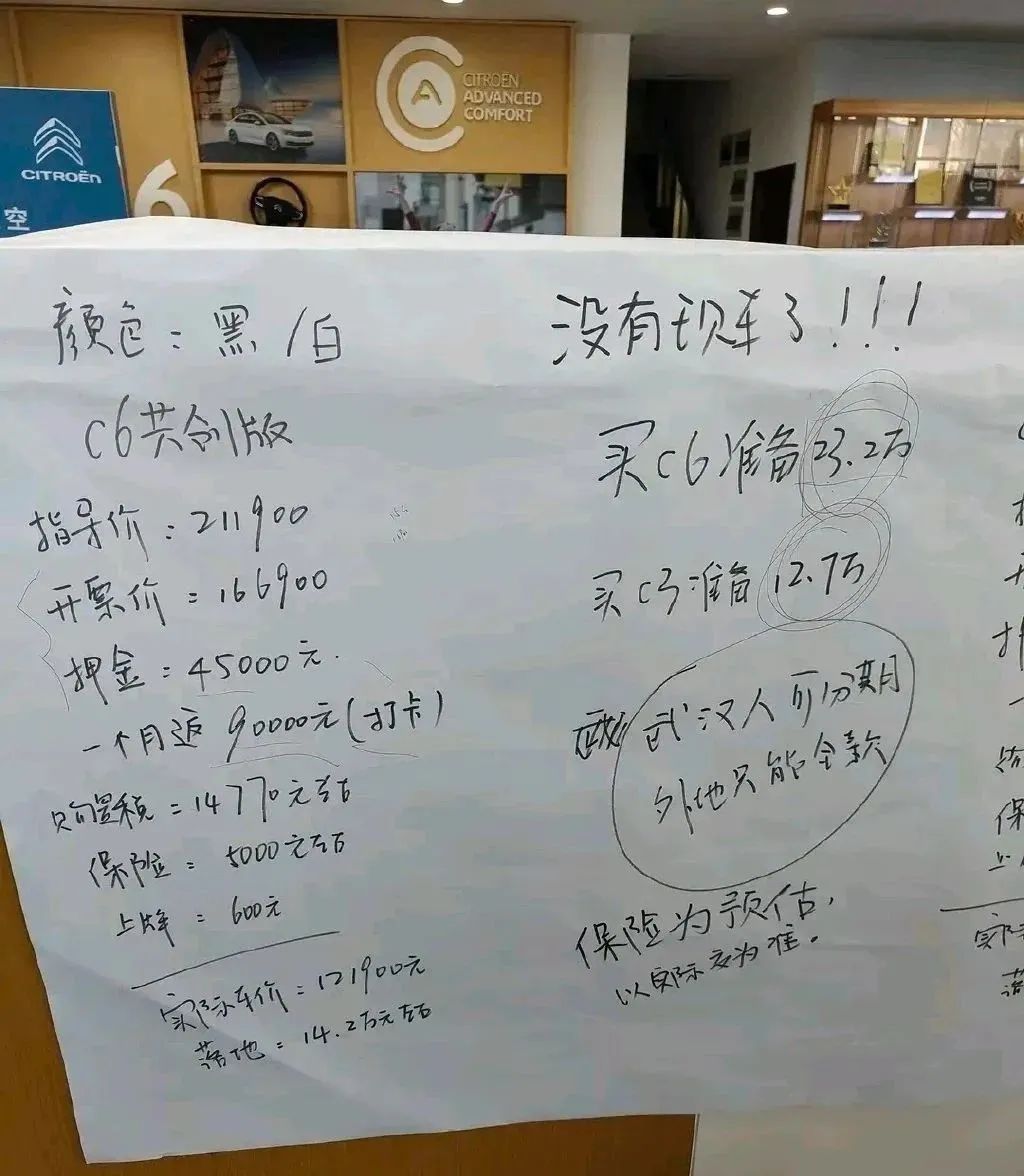 CITROËN
ADVANCED
COMFORT
CITROËN
空
6
颜色：黑/白
C6共创版
指导价：211900
开票价：166900
押金：45000元.
一个月返 90000元(打卡)
购置税＝14770元左右
保险：5000元左右
上牌：600元
实际车价：121900元
落地：14.2万元左右
没有现车了!!!
买C6准备23.2万
买C3准备12.7万
武汉人可分期
外地只能全款
保险为预估，
以实际交为准。
保
上
实际
落